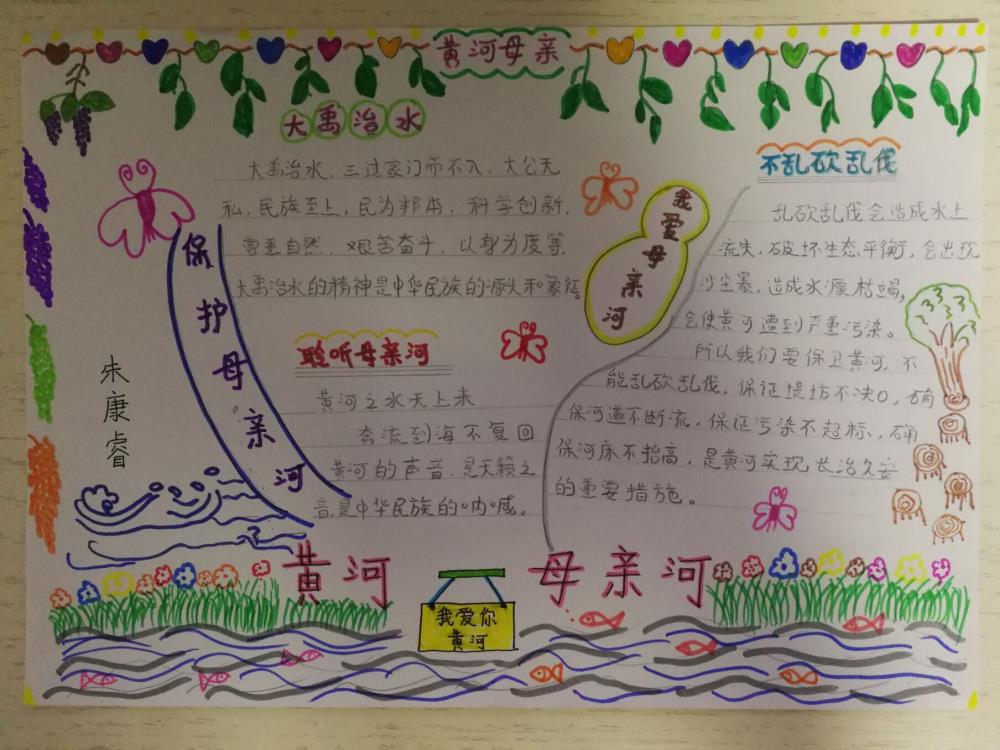 黄河母亲
大禹治水
大禹治水,三过家门而不入,大公无
私,民族至上,民为邦本,科学创新,
尊重自然,艰苦奋斗,以身为度等,
大禹治水的精神是中华民族的源头和象征。
保护母亲河
朱康睿
聆听母亲河
黄河之水天上来
奔流到海不复回
黄河的声音,是天籁之
音,是中华民族的呐喊。
我爱母亲河
不乱砍乱伐
乱砍乱伐会造成水土
流失,破坏生态平衡,会出现
沙尘暴,造成水源枯竭,
会使黄河遭到严重污染。
所以我们要保卫黄河,不
能乱砍乱伐,保证堤坊不决口,确
保河道不断流,保证污染不超标,确
保河床不抬高,是黄河实现长治久安
的重要措施。
黄河 母亲河
我爱你
黄河